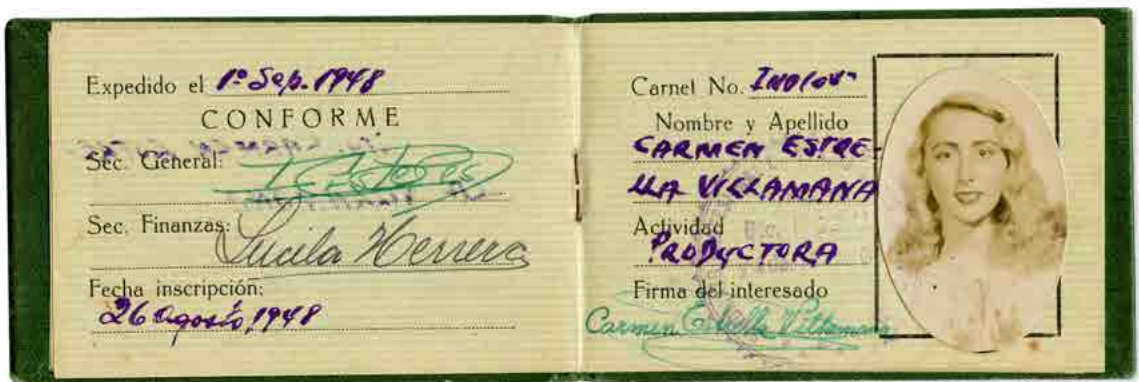 Expedido el 1º Sep. 1948
CONFORME
Sec. General:
Sec. Finanzas: Lucila Herrera
Fecha inscripción:
26 Agosto, 1948
Carnet No.
Nombre y Apellido
CARMEN ESTRE-
LLA VILLAMANA
Actividad
PRODUCTORA
Firma del interesado
Carmen Estrella Villamana